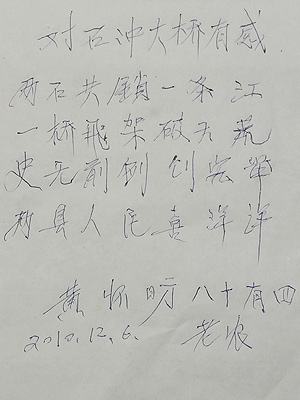 对石冲大桥有感.
两石共鎖一条江
一桥飛架破天荒
史无前例创宏举
新县人民喜洋洋
黄怀明八十有四
2010.12.6. 老农